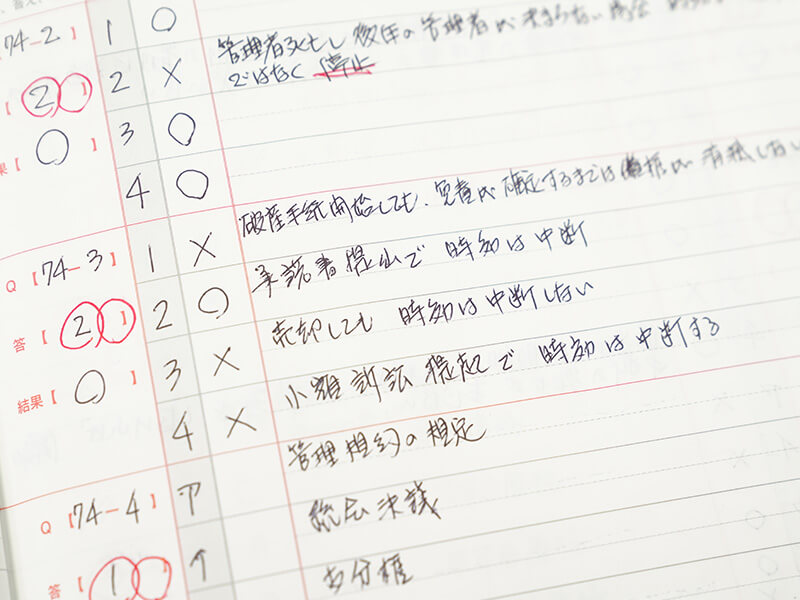 74-2
1 ○ 管理者死亡し後任の管理者が決まらない場合
【2】 2 × ではなく 停止
3 ○
果【○】
4 ○
破産手続開始しても、免責が確定するまでは
Q【74-3】 1 × 承諾書提出で 時効は中断
答【2】 2 ○ 売却しても 時効は中断しない
3 × 小額訴訟提起で 時効は中断する
結果【○】
4 × 管理規約の規定
Q【74-4】 ア 総会決議
答【1】 イ 共分権